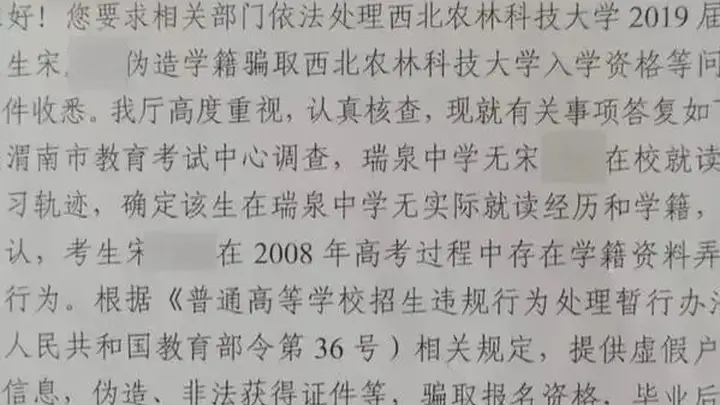 好！您要求相关部门依法处理西北农林科技大学 2019 届
生宋 伪造学籍骗取西北农林科技大学入学资格等问
件收悉。我厅高度重视，认真核查，现就有关事项答复如下
渭南市教育考试中心调查，瑞泉中学无宋 在校就读
习轨迹，确定该生在瑞泉中学无实际就读经历和学籍，
认，考生宋 在 2008 年高考过程中存在学籍资料弄
行为。根据《普通高等学校招生违规行为处理暂行办法
人民共和国教育部令第 36 号）相关规定，提供虚假户
信息，伪造、非法获得证件等，骗取报名资格，毕业后